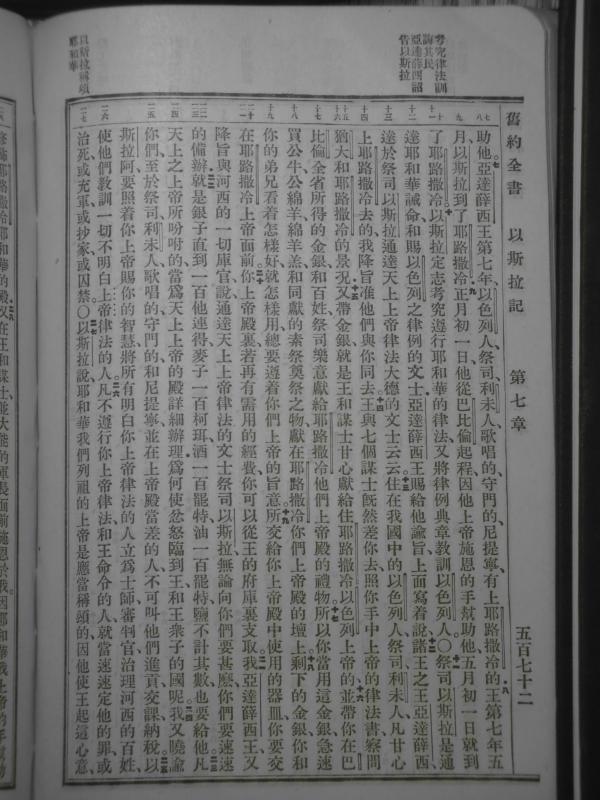 舊約全書　以斯拉記　第七章　五百七十二
考究律法訓
誨其民
亞達薛西詔
告以斯拉
助他亞達薛西王第七年以色列人祭司利未人歌唱的守門的尼提寧有上耶路撒冷的王第七年五
月以斯拉到了耶路撒冷正月初一日他從巴比倫起程因他上帝施恩的手幫助他五月初一日就到
了耶路撒冷以斯拉定志考究遵行耶和華的律法又將律例典章教訓以色列人〇祭司以斯拉是通
達耶和華誡命和賜以色列之律例的文士亞達薛西王賜給他諭旨上面寫着說諸王之王亞達薛西
達於祭司以斯拉通達天上上帝律法大德的文士云云住在我國中的以色列人祭司利未人凡甘心
上耶路撒冷去的我降旨准他們與你同去王與七個謀士旣然差你去照你手中上帝的律法書察問
猶大和耶路撒冷的景況又帶金銀就是王和謀士甘心獻給住耶路撒冷以色列上帝的並帶你在巴
比倫全省所得的金銀和百姓祭司樂意獻給耶路撒冷他們上帝殿的禮物所以你當用這金銀急速
買公牛公綿羊綿羊羔和同獻的素祭奠祭之物獻在耶路撒冷你們上帝殿的壇上剩下的金銀你和
你的弟兄看着怎樣好就怎樣用總要遵着你們上帝的旨意所交給你上帝殿中使用的器皿你要交
在耶路撒冷上帝面前你上帝殿裏若再有需用的經費你可以從王的府庫裏支取我亞達薛西王又
降旨與河西的一切庫官說通達天上上帝律法的文士祭司以斯拉無論向你們要甚麼你們要速速
的備辦就是銀子直到一百他連得麥子一百柯珥酒一百罷特油一百罷特鹽不計其數也要給他凡
天上之上帝所吩咐的當爲天上上帝的殿詳細辦理爲何使忿怒臨到王和王衆子的國呢我又曉諭
你們至於祭司利未人歌唱的守門的和尼提寧並在上帝殿當差的人不可叫他們進貢交課納稅以
斯拉阿要照着你上帝賜你的智慧將所有明白你上帝律法的人立爲士師審判官治理河西的百姓
使他們教訓一切不明白上帝律法的人凡不遵行你上帝律法和王命令的人就當速速定他的罪或
治死或充軍或抄家或囚禁〇以斯拉說耶和華我們列祖的上帝是應當稱頌的因他使王起這心意
以斯拉稱頌
耶和華
修飾耶路撒冷耶和華的殿又在王和謀士並大能的軍長面前施恩於我因耶和華我上帝的手